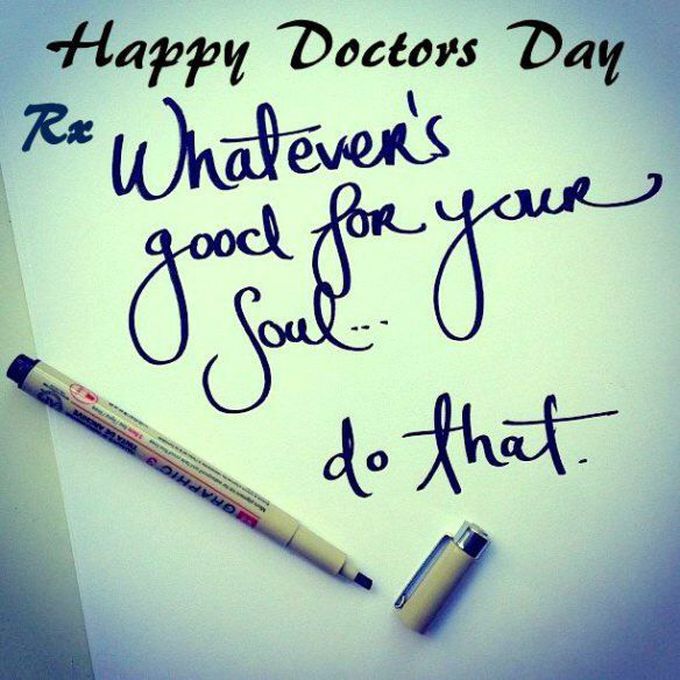 Happy Doctors Day
Rx Whatever's
good for your
Soul...
do that.
GRAPHIC